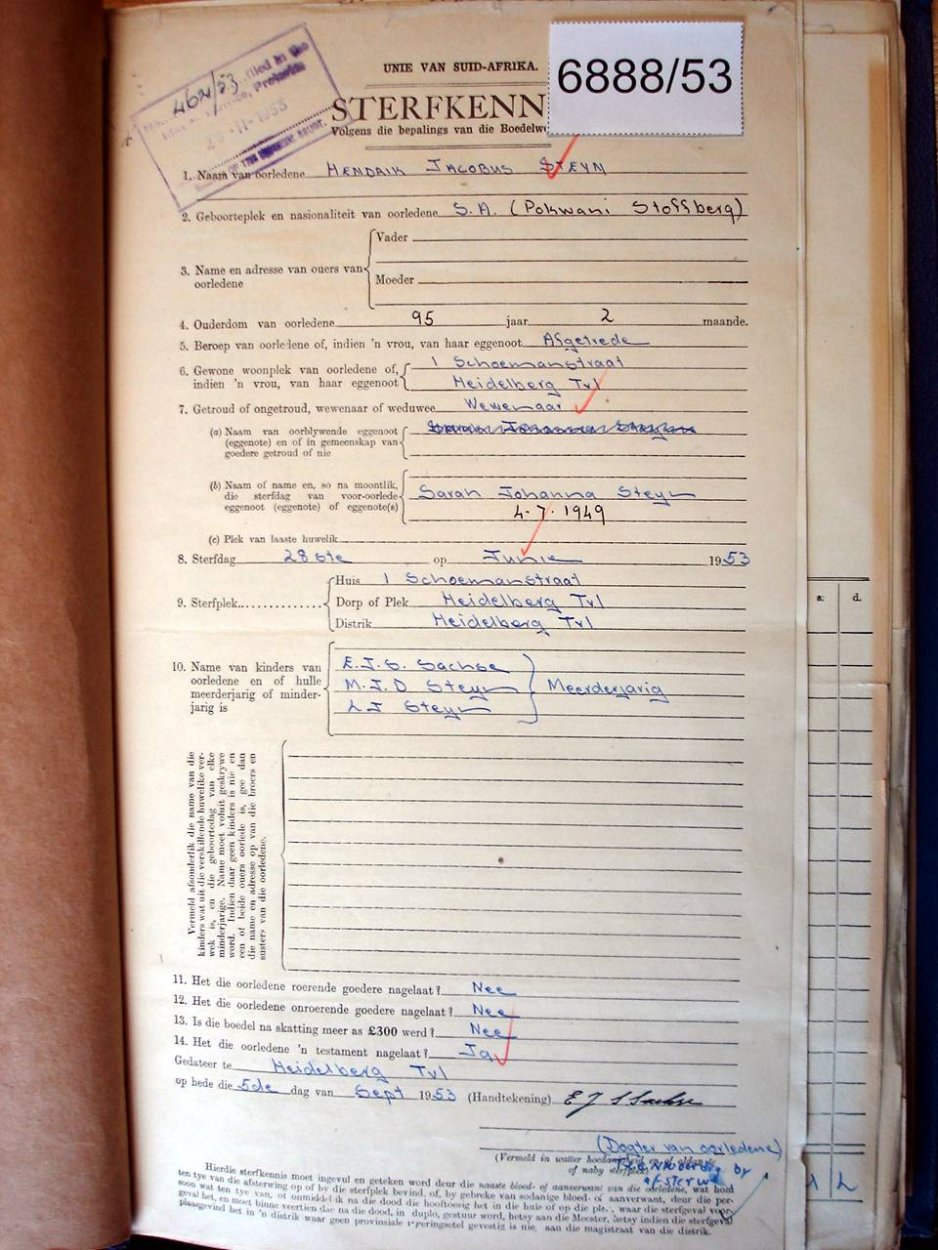 6888/53
462/53
UNIE VAN SUID-AFRIKA.
STERFKENN
Volgens die bepalings van die Boedelw
1. Naam van oorledene HENDRIK JACOBUS STEYN
2. Geboorteplek en nasionaliteit van oorledene S.A. (Pokwani Stoffberg)
3. Name en adresse van ouers van oorledene
Vader
Moeder
4. Ouderdom van oorledene 95 jaar 2 maande.
5. Beroep van oorledene of, indien 'n vrou, van haar eggenoot Afgetrede
6. Gewone woonplek van oorledene of, 1 Schoemanstraat
indien 'n vrou, van haar eggenoot Heidelberg Tvl
7. Getroud of ongetroud, wewenaar of weduwee Wewenaar
(a) Naam van oorblywende eggenoot
(eggenote) en of in gemeenskap van
goedere getroud of nie
(b) Naam of name en, so na moontlik,
die sterfdag van voor-oorlede Sarah Johanna Steyn
eggenoot (eggenote) of eggenote(s) 4.7.1949
(c) Plek van laaste huwelik
8. Sterfdag 28ste op Junie 1953
9. Sterfplek
Huis 1 Schoemanstraat
Dorp of Plek Heidelberg Tvl
Distrik Heidelberg Tvl
10. Name van kinders van E.J.S. Sachse
oorledene en of hulle M.J.D Steyn Meerderjarig
meerderjarig of minder- L J Steyn
jarig is
Vermeld afsonderlik die name van die
kinders wat uit die verskillende huwelike ver-
wek is, en die geboortedag van elke
minderjarige. Name moet voluit geskrywe
word. Indien daar geen kinders is nie en
een of beide ouers oorlede is, gee dan
die name en adresse op van die broers en
susters van die oorledene.
11. Het die oorledene roerende goedere nagelaat? Nee
12. Het die oorledene onroerende goedere nagelaat? Nee
13. Is die boedel na skatting meer as £300 werd? Nee
14. Het die oorledene 'n testament nagelaat? Ja
Gedateer te Heidelberg Tvl
op hede die 5de dag van Sept 1953 (Handtekening) E J S Sachse
(Dogter van oorledene)
(Vermeld in watter
of naby sterf
by
afsterwe
Hierdie sterfkennis moet ingevul en geteken word deur die naaste bloed- of aanverwant van die oorledene, wat hom
ten tye van die afsterwing op of by die sterfplek bevind, of, by gebreke van sodanige bloed- of aanverwant, deur die per-
soon wat ten tye van, of onmiddellik na die dood die hooftoesig het in die huis of op die plek, waar die sterfgeval voor-
geval het, en moet binne veertien dae na die dood, in duplo, gestuur word, hetsy aan die Meester, hetsy indien die sterfgeval
plaasgevind het in 'n distrik waar geen provinsiale registrasie gevestig is nie, aan die magistraat van die distrik.
s: d.